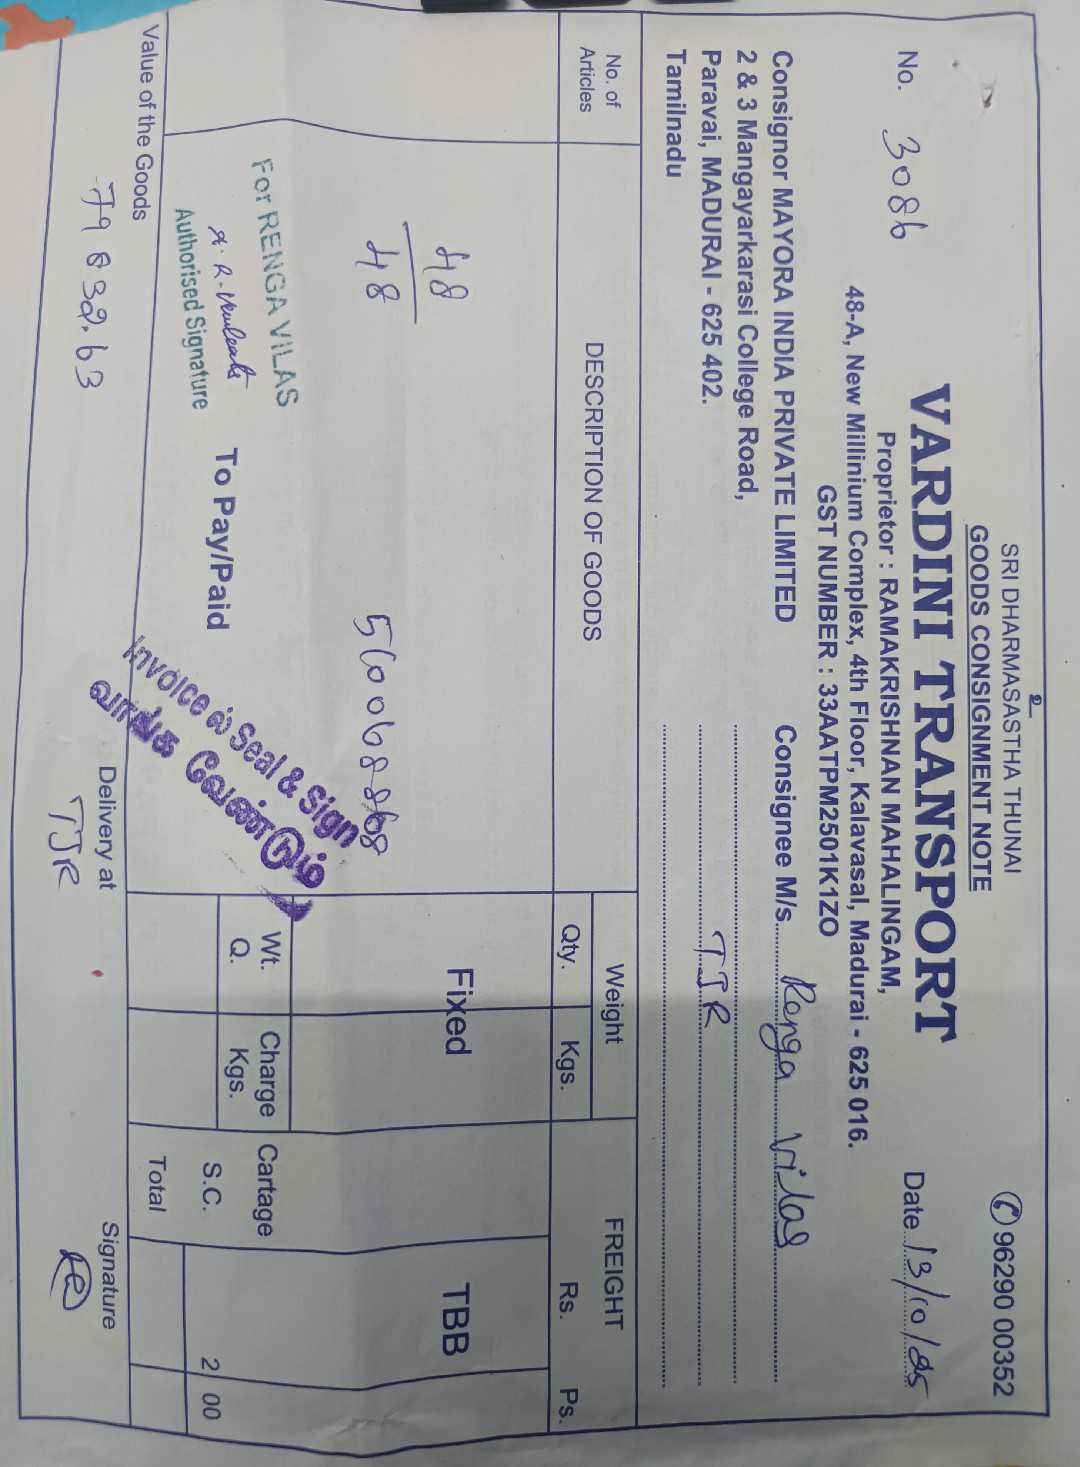 உ
SRI DHARMASASTHA THUNAI
GOODS CONSIGNMENT NOTE
✆ 96290 00352
VARDINI TRANSPORT
No. 3086
Date 13/10/25
Proprietor : RAMAKRISHNAN MAHALINGAM,
48-A, New Millinium Complex, 4th Floor, Kalavasal, Madurai - 625 016.
GST NUMBER : 33AATPM2501K1ZO
Consignor MAYORA INDIA PRIVATE LIMITED
2 & 3 Mangayarkarasi College Road,
Paravai, MADURAI - 625 402.
Tamilnadu
Consignee M/s. Renga Vilas
TJR
No. of Articles
DESCRIPTION OF GOODS
Weight
Qty. Kgs.
FREIGHT
Rs. Ps.
48
48
Fixed
TBB
For RENGA VILAS
Authorised Signature
To Pay/Paid
Invoice ல் Seal & Sign
வாங்க வேண்டும்
Wt. Q.
Charge Kgs.
Cartage
S.C. 2 00
Total
Value of the Goods
Delivery at
TJR
Signature